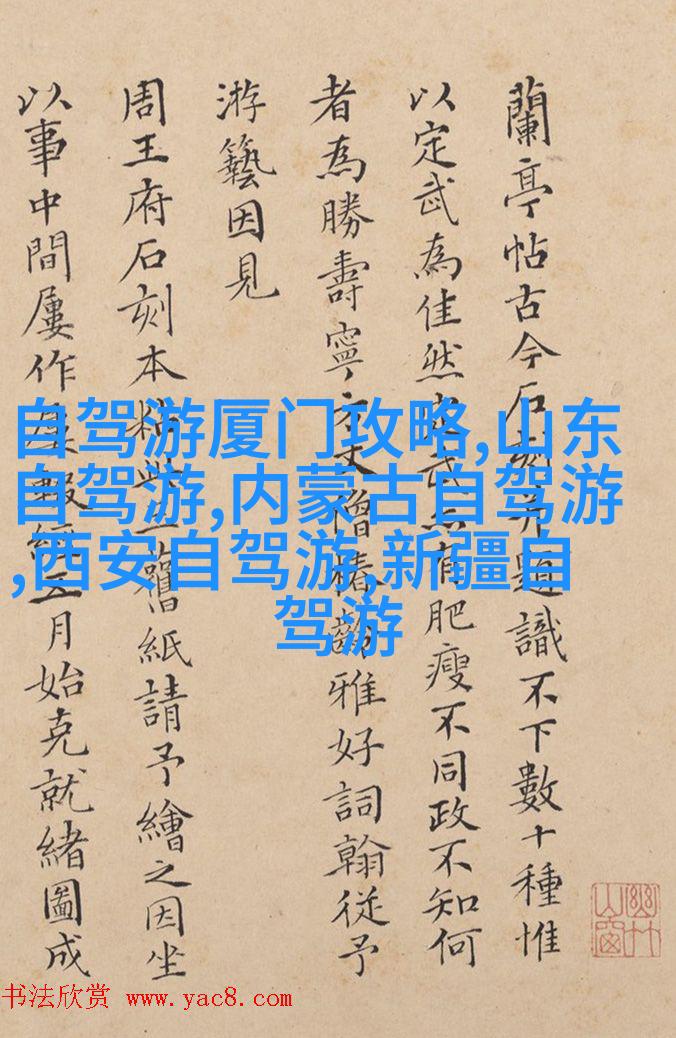 蘭亭帖古今石刻并題識不下數十種惟
以定武為佳然定武亦有肥瘦不同政不知何
者為勝壽寧方丈僧椿齡雅好詞翰從予
游藝因見
周王府石刻本粘此舊紙請予繪之因坐
以事中間屢作屢輟經五月始克就緒圖成
自驾游厦门攻略,山东
自驾游,内蒙古自驾游
,西安自驾游,新疆自
驾游
幽竹山窗
书法欣赏 www.yac8.com